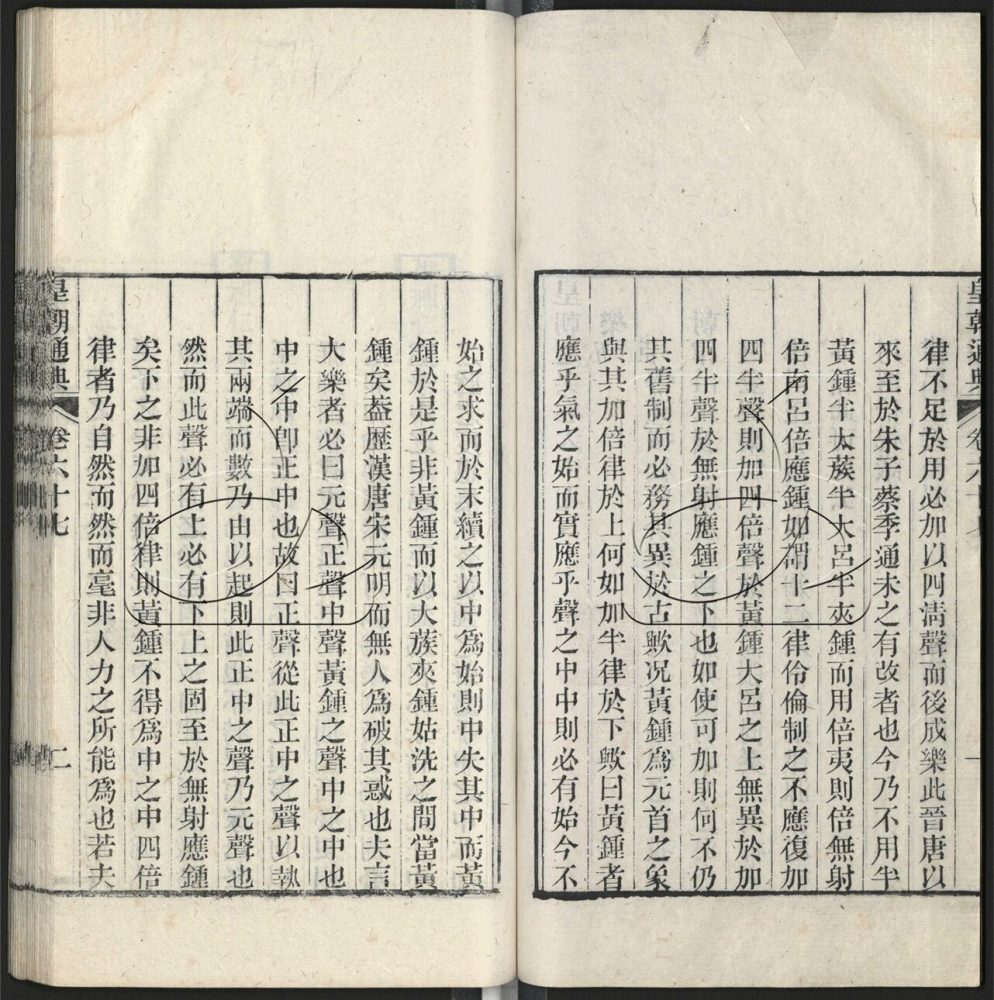 皇朝通典 卷六十七 一
律不足於用必加以四淸聲而後成樂此晉唐以
來至於朱子蔡季通未之有改者也今乃不用半
黃鍾半大蔟半大呂半夾鍾而用倍夷則倍無射
倍南呂倍應鍾如謂十二律伶倫制之不應復加
四半聲則加四倍聲於黃鍾大呂之上無異於加
四半聲於無射應鍾之下也如使可加則何不仍
其舊制而必務其異於古歟况黃鍾爲元首之象
與其加倍律於上何如加半律於下歟曰黃鍾者
應乎氣之始而實應乎聲之中中則必有始今不
始之求而於末續之以中爲始則中失其中而黃
鍾於是乎非黃鍾而以大蔟夾鍾姑洗之間當黃
鍾矣葢歷漢唐宋元明而無人爲破其惑也夫言
大樂者必曰元聲正聲中聲黃鍾之聲中之中也
中之中卽正中也故曰正聲從此正中之聲以執
其兩端而數乃由以起則此正中之聲乃元聲也
然而此聲必有上必有下上之固至於無射應鍾
矣下之非加四倍律則黃鍾不得爲中之中四倍
律者乃自然而然而毫非人力之所能爲也若夫
皇朝通典 卷六十七 二